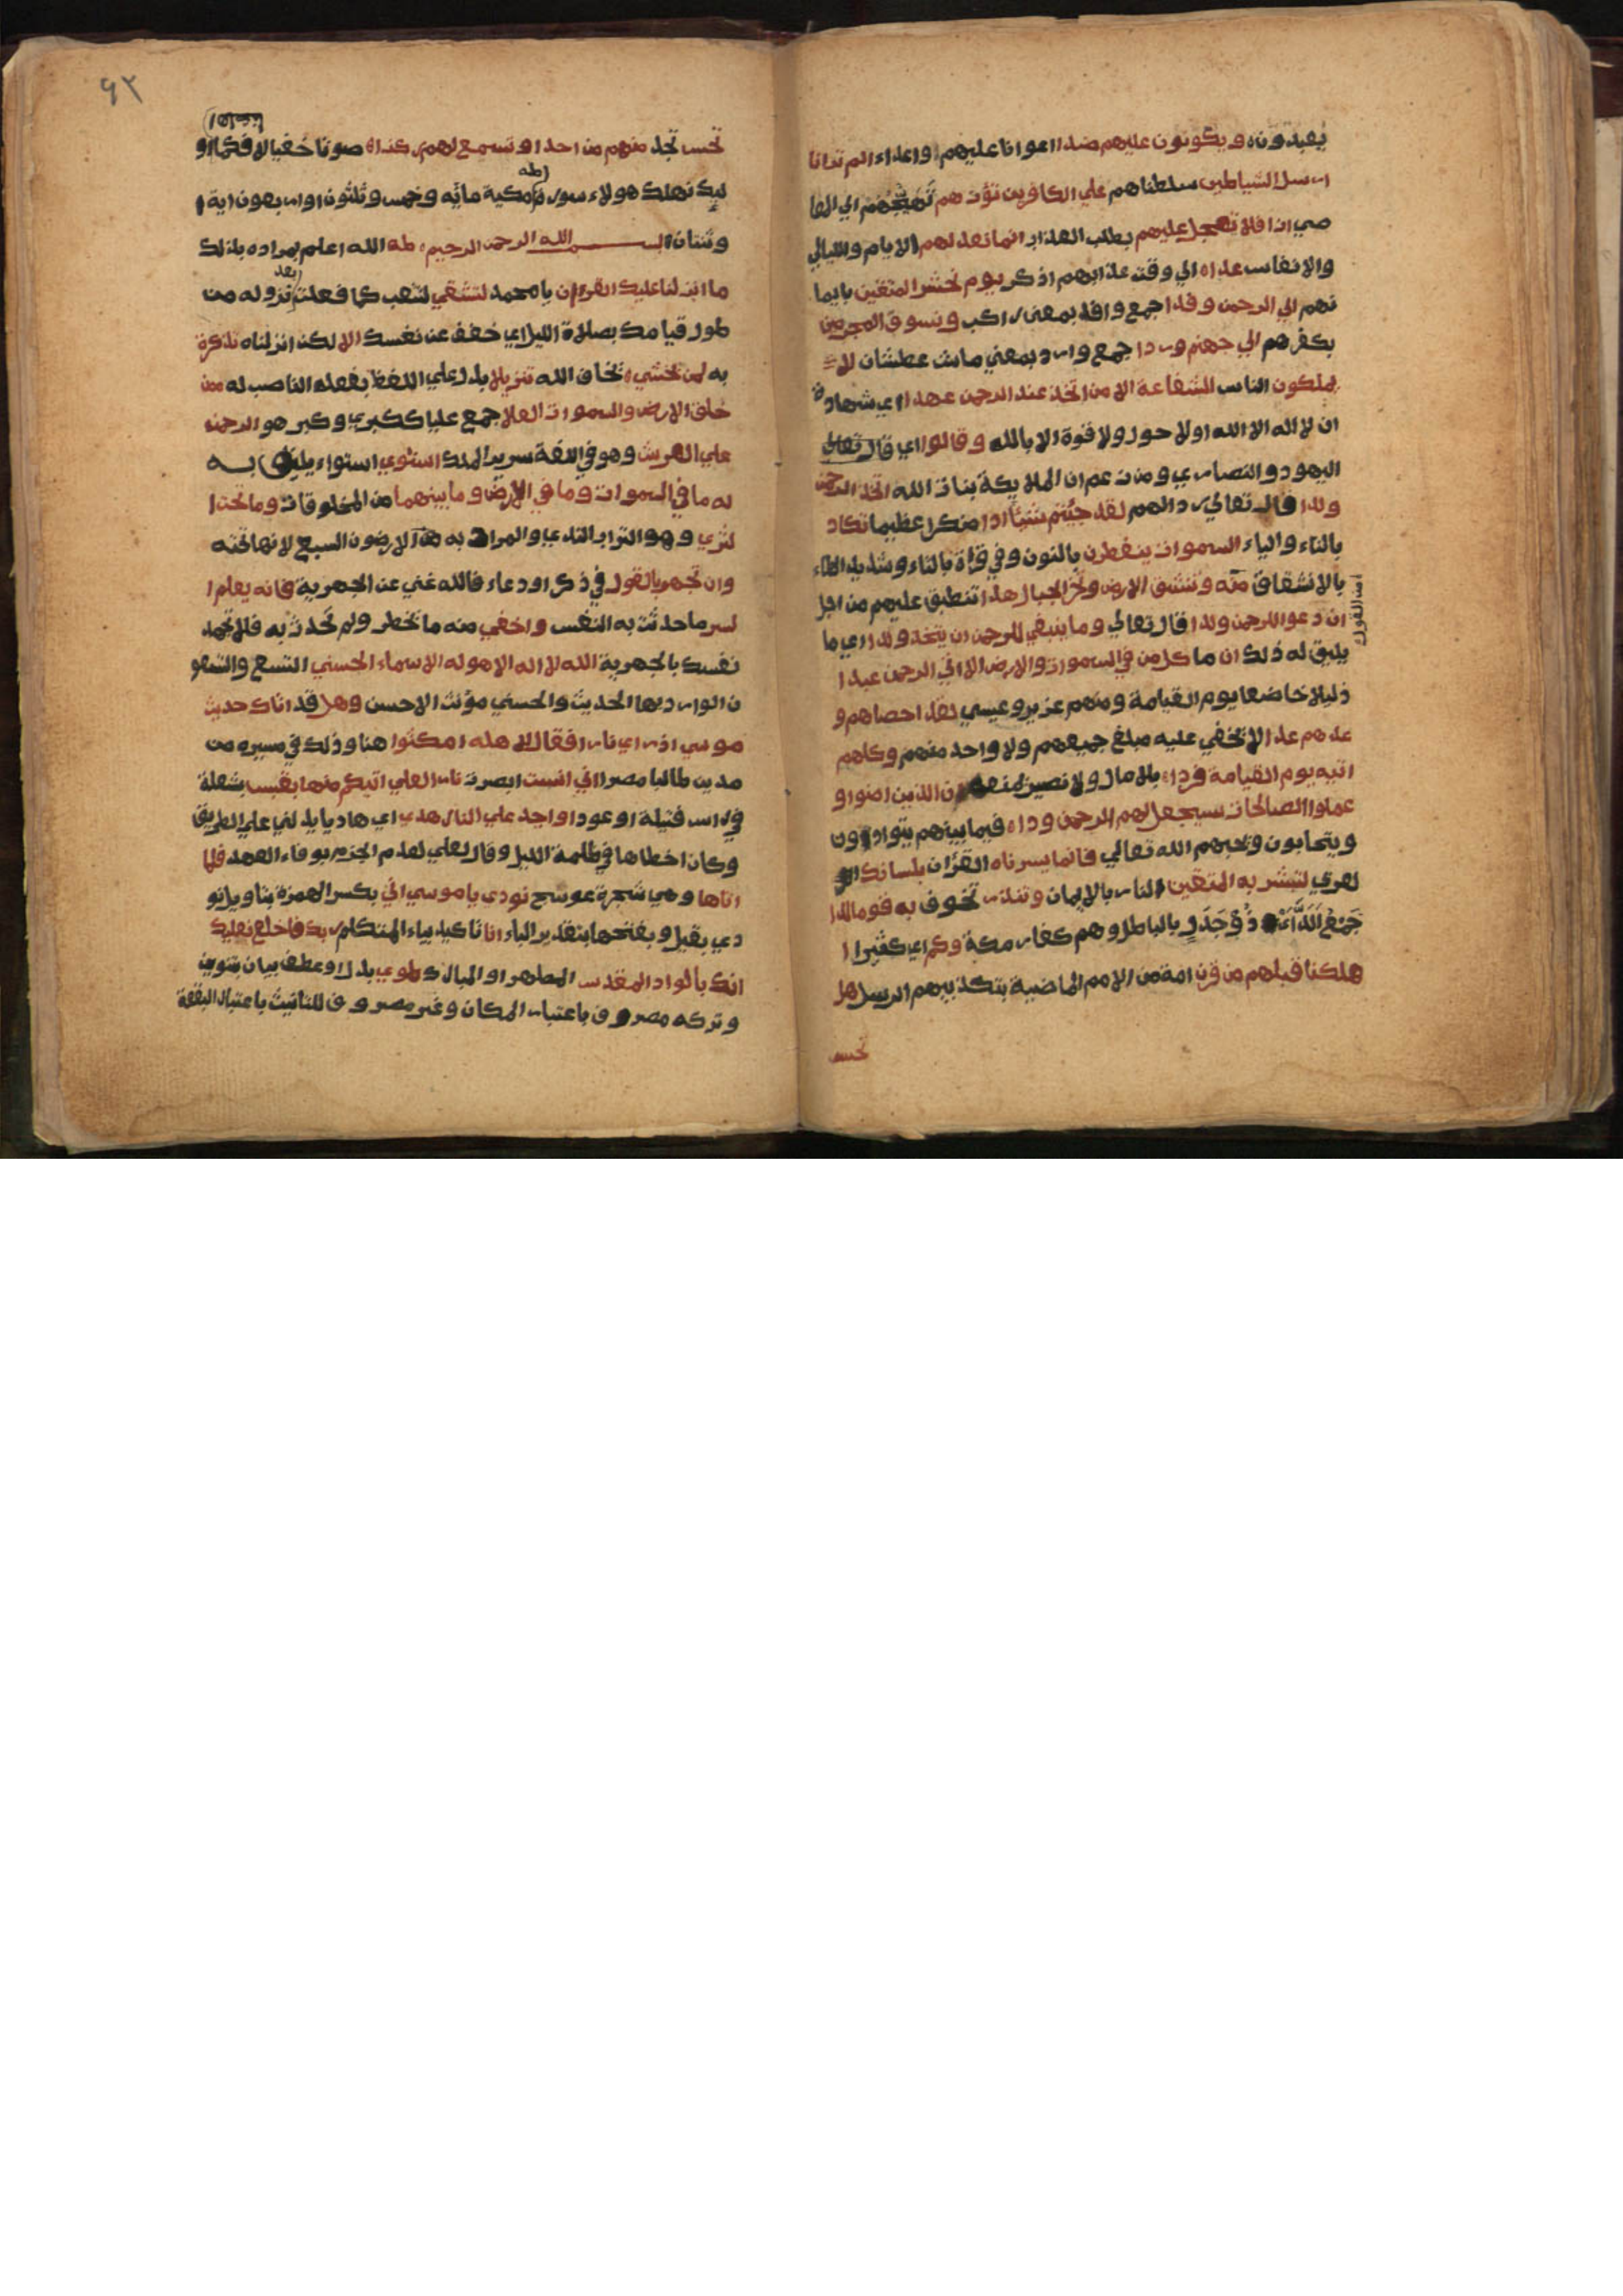 يعبدونه ويكونون عليهم ضدا اعوانا عليهم واعداء الم تر انا
ارسلنا الشياطين سلطناهم علي الكافرين تؤزهم تهيجهم الي المعا
صي ازا فلا تعجل عليهم بطلب العذاب انما نعد لهم الايام والليالي
والانفاس عدا ه الي وقت عذابهم اذكر يوم نحشر المتقين بايما
نهم الي الرحمن وفدا جمع وافد بمعني راكب ونسوق المجرمين
بكفرهم الي جهنم وردا جمع وارد بمعني ماش عطشان لا
يملكون الناس الشفاعة الا من اتخذ عند الرحمن عهدا اي شهادة
ان لا اله الا الله اولا حول ولا قوة الا بالله وقالوا اي قال تعالي
اليهود والنصاري ومن زعم ان الملايكة بنات الله اتخذ الرحمن
ولدا قال تعالي ردا لهم لقد جئتم شيئا ادا منكرا عظيما تكاد
بالتاء والياء السموات ينفطرن بالنون وفي قراة بالتاء وتشديد الطاء
بالانشقاق منه وتنشق الارض وتخر الجبال هدا تنطبق عليهم من اجل
ان دعوا للرحمن ولدا قال تعالي وما ينبغي للرحمن ان يتخذ ولدا اي ما
يليق له ذلك ان ما كل من في السموات والارض الا اتي الرحمن عبدا
ذليلا خاضعا يوم القيامة ومنهم عزير وعيسي لقد احصاهم و
عدهم عدا لا يخفي عليه مبلغ جميعهم ولا واحد منهم وكلهم
اتيه يوم القيامة فردا ه بلا مال ولا نصير يمنعه ان الذين امنوا و
عملوا الصالحات سيجعل لهم الرحمن ودا ه فيما بينهم يتوادون
ويتحابون ويحبهم الله تعالي فانما يسرناه القرٔان بلسانك ال
لعربي لتبشر به المتقين الناس بالايمان وتنذر تخوف به قوما لدا
جمع الد اي ذو جدل بالباطل وهم كفار مكة وكم اي كثيرا ا
هلكنا قبلهم من قرن امة من الامم الماضية بتكذيبهم الرسل هل
تحس
٩٢
تحس تجد منهم من احد او تسمع لهم ركزا ه صوتا خفيا لا فكما او
ليك نهلك هولاء سورة طه مكية مائه وخمس وثلثون او اربعون اية ا
وثنتان بسم الله الرحمن الرحيم ه طه الله اعلم بمراده بذلك
ما انزلنا عليك القرءان يا محمد لتشقي لتتعب كما فعلت بعد نزوله من
طول قيامك بصلاة الليل اي خفف عن نفسك الا لكن انزلناه تذكرة
به لمن يخشي ه يخاف الله تنزيلا بدل علي اللفظ بفعله الناصب له ممن
خلق الارض والسموات العلا جمع عليا ككبري وكبر هو الرحمن
علي العرش وهو في اللغة سرير الملك استوي استواء يليق به
له ما في السموات وما في الارض وما بينهما من المخلوقات وما تحت ا
لثري وهو التراب الندي والمراد به هنا الارضون السبع لانها تحته
وان تجهر بالقول في ذكر او دعاء فالله غني عن الجهر به فانه يعلم ا
لسر ما حدثت به النفس واخفي منه ما خطر ولم تحدث به فلا تجهد
نفسك بالجهر به الله لا اله الا هو له الاسماء الحسني التسع والتسعو
ن الوارد بها الحديث والحسني مؤنث الاحسن وهل قد اتاك حديث
موسي اذ راي نارا فقال لاهله امكثوا هنا وذلك في مسيره من
مدين طالبا مصرا اني انست ابصرت نارا لعلي اتيكم منها بقبس بشعلة
في راس فتيلة او عود او اجد علي النار هدي اي هاديا يدلني علي الطريق
وكان اخطاها في ظلمة الليل وقال لعلي لعدم الجزم بوفاء العهد فلما
اتاها وهي شجرة عوسج نودي يا موسي اني بكسر الهمزة بتاويل نو
دي بقيل وبفتحها بتقدير الباء انا تاكيد بياء المتكلم ربك فاخلع نعليك
انك بالواد المقدس المطهر او المبارك طوي بدل او عطف بيان بتنوين
وتركه مصروف باعتبار المكان وغير مصروف للتانيث باعتبار البقعة